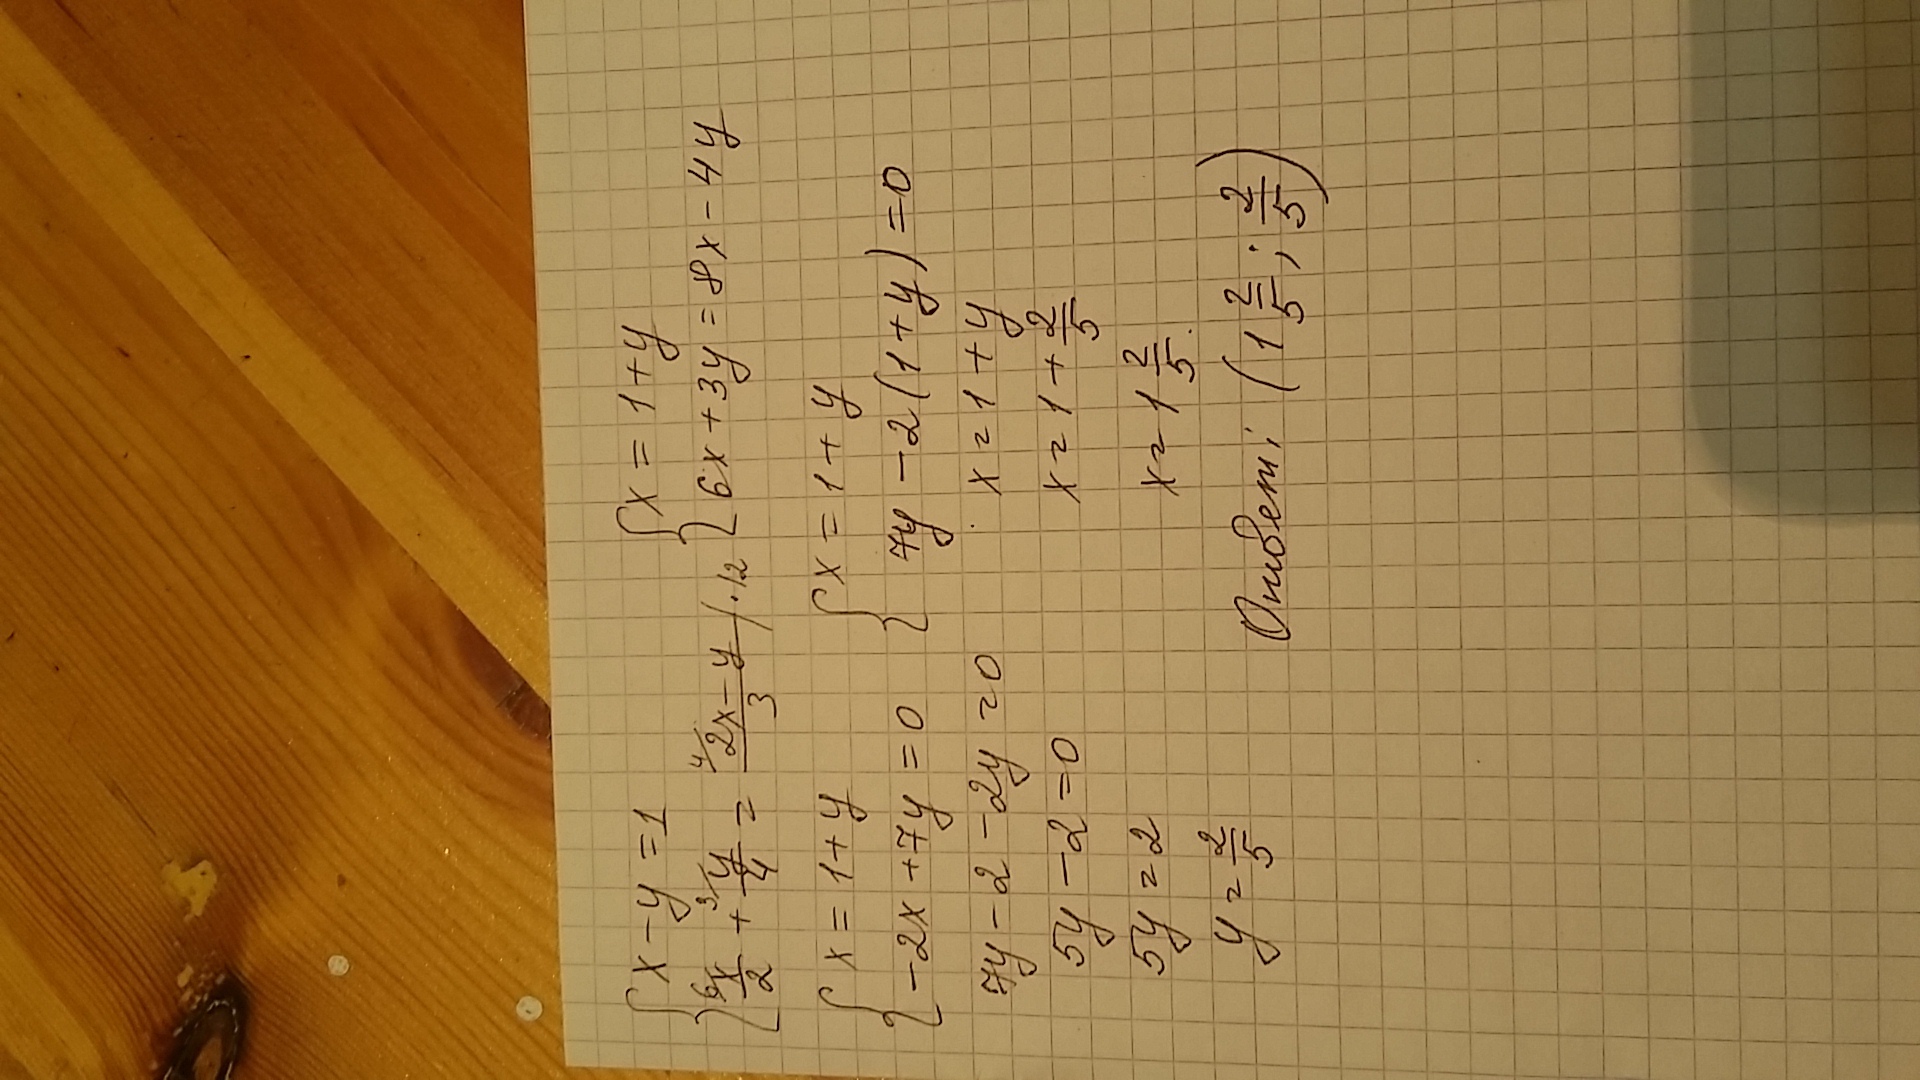 { x - y = 1 { x = 1 + y
{ 6/x/2 + 3/y/4 = 4/2x - y/3 /·12 { 6x + 3y = 8x - 4y
{ x = 1 + y { x = 1 + y
{ -2x + 7y = 0 { 7y - 2(1 + y) = 0
7y - 2 - 2y = 0 x = 1 + y
5y - 2 = 0 x = 1 + 2/5
5y = 2 x = 1 2/5.
y = 2/5 Ответ: (1 2/5; 2/5)